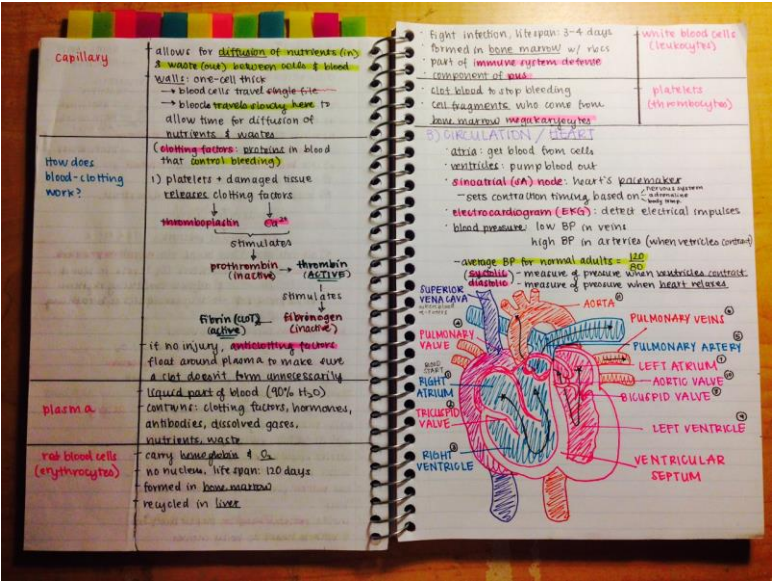 capillary
allows for diffusion of nutrients (in)
& waste (out) between cells & blood
walls: one-cell thick
→ blood cells travel single file
→ blood travels slowly here to
allow time for diffusion of
nutrients & wastes
How does
blood-clotting
work?
(clotting factors: proteins in blood
that control bleeding)
1) platelets + damaged tissue
releases clotting factors
thromboplastin Ca²⁺
stimulates
prothrombin → thrombin
(inactive) (ACTIVE)
stimulates
Fibrin (CLOT) ← fibrinogen
(active) (inactive)
if no injury, anticlotting factors
float around plasma to make sure
a clot doesn't form unnecessarily
plasma
liquid part of blood (90% H₂O)
contains: clotting factors, hormones,
antibodies, dissolved gases,
nutrients, waste
red blood cells
(erythrocytes)
carry hemoglobin & O₂
no nucleus, life span: 120 days
formed in bone marrow
recycled in liver
white blood cells
(leukocytes)
fight infection, lifespan: 3-4 days
formed in bone marrow w/ rbcs
part of immune system defense
component of pus
platelets
(thrombocytes)
clot blood to stop bleeding
cell fragments who come from
bone marrow megakaryocytes
3) CIRCULATION / HEART
· atria: get blood from cells
· ventricles: pump blood out
· sinoatrial (SA) node: heart's pacemaker
- sets contraction timing based on
nervous system
adrenaline
body temp.
· electrocardiogram (EKG): detect electrical impulses
· blood pressure: low BP in veins
high BP in arteries (when ventricles contract)
- average BP for normal adults = 120/80
(systolic - measure of pressure when ventricles contract
diastolic - measure of pressure when heart relaxes
SUPERIOR
VENA CAVA
AORTA
PULMONARY
VALVE
PULMONARY VEINS
PULMONARY ARTERY
START
RIGHT
ATRIUM
LEFT ATRIUM
AORTIC VALVE
BICUSPID VALVE
TRICUSPID
VALVE
LEFT VENTRICLE
RIGHT
VENTRICLE
VENTRICULAR
SEPTUM